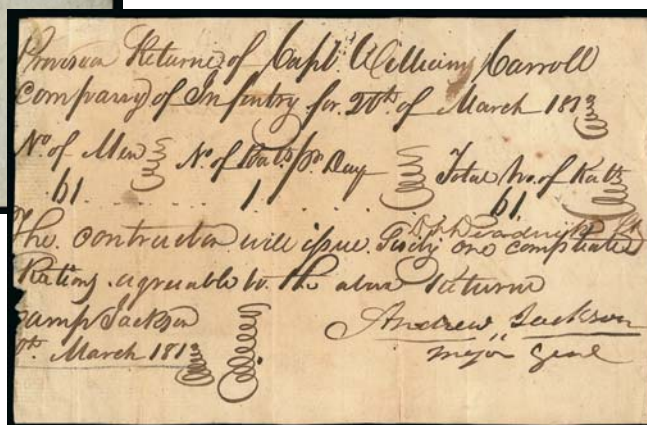 Provision Return of Capt. William Carroll
Company of Infantry for 20th of March 1813
No of Men No of Rats Pr. Day Total No. of Rats
61 1 61
The contractor will issue Sixty one compleate
Rations agreable to the above Return
Camp Jackson
March 1813
Andrew Jackson
Major Genl